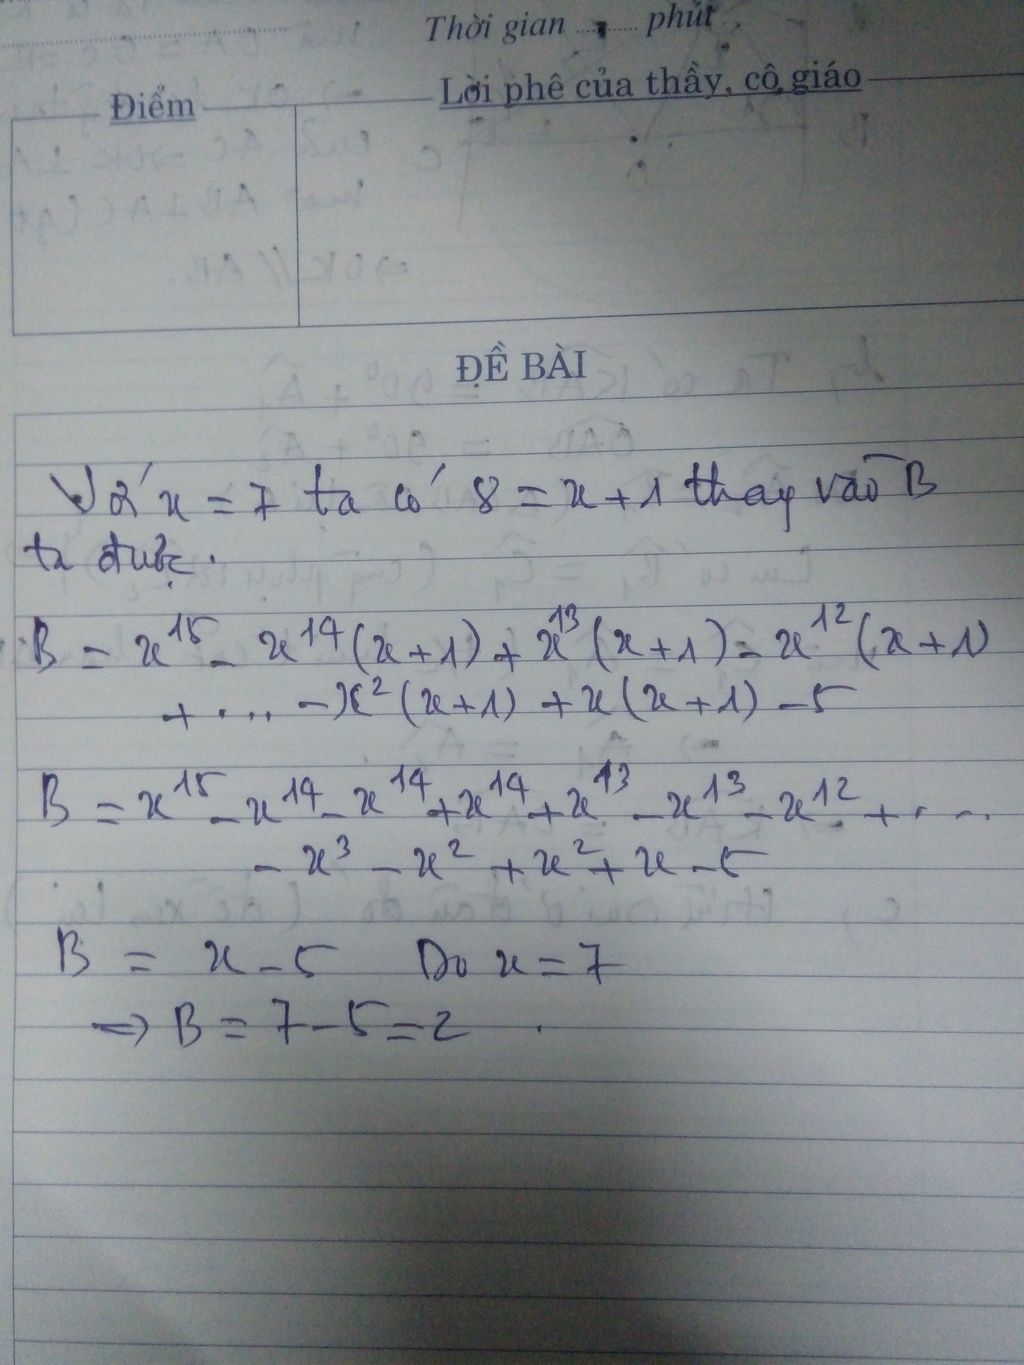 Thời gian ............ phút
Điểm
Lời phê của thầy, cô giáo
ĐỀ BÀI
Với x = 7 ta có 8 = x + 1 thay vào B
ta được.
B = x¹⁵ - x¹⁴(x+1) + x¹³(x+1) - x¹²(x+1)
+ .... - x²(x+1) + x(x+1) - 5
B = x¹⁵ - x¹⁴ - x¹⁴ + x¹⁴ + x¹³ - x¹³ - x¹² + ....
- x³ - x² + x² + x - 5
B = x - 5 Do x = 7
=> B = 7 - 5 = 2 .